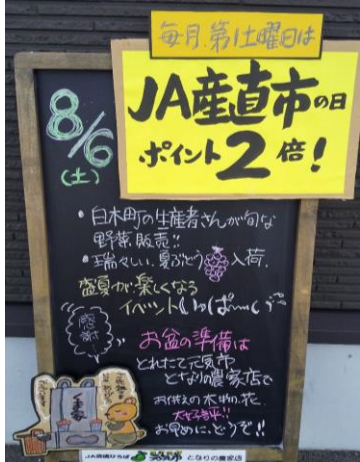 毎月第1土曜日は
JA産直市の日
ポイント2倍!
8/6
(土)
・白木町の生産者さんが旬な
野菜販売!!
・瑞々しい、夏ぶどう入荷。
盛夏が楽しくなる
イベントいっぱーい
感謝
お盆の準備は
とれたて元気市
となりの農家店で
お供えの木物、花、
大好評!!
お早めにどうぞ!!
JA産直ひろば
となりの農家店